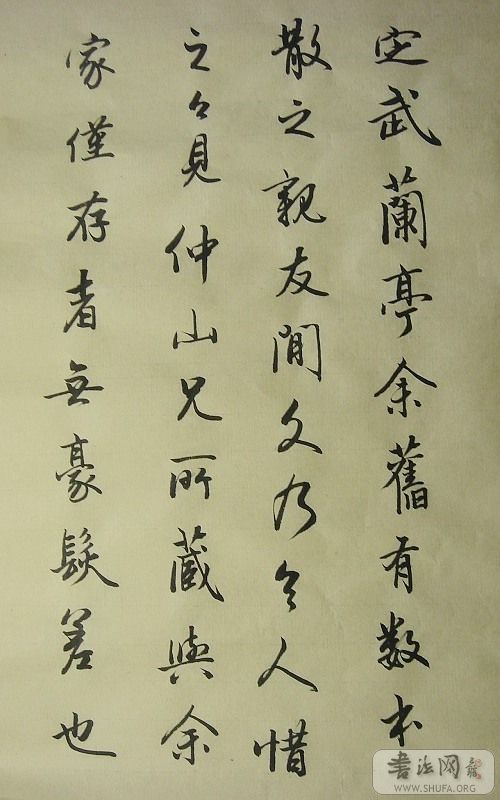 定武蘭亭余舊有数本
散之親友間久乃令人惜
之今見仲山兄所藏與余
家僅存者無豪髮差也
書法网
WWW.SHUFA.ORG